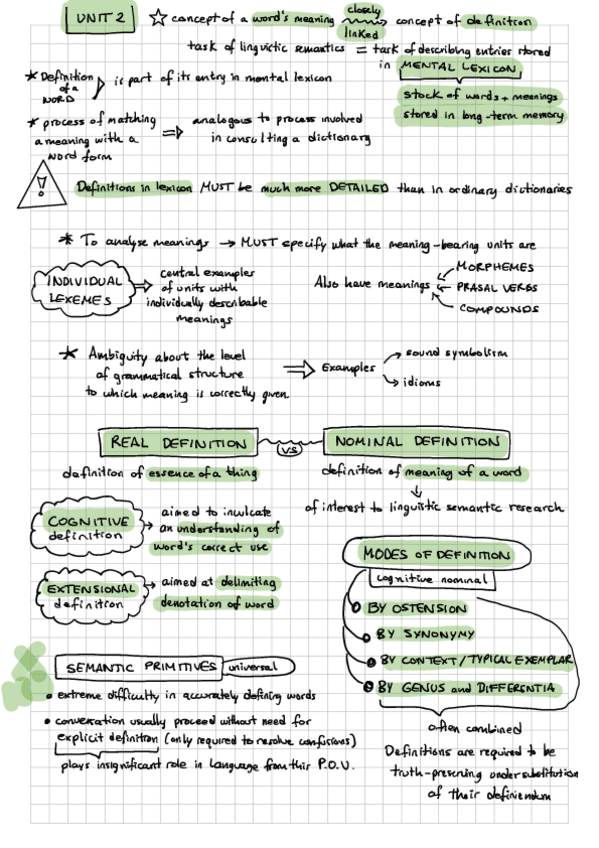 UNIT 2
☆ concept of a word's meaning closely linked concept of definition
task of linguistic semantics = task of describing entries stored
in MENTAL LEXICON
* Definition of a WORD } is part of its entry in mental lexicon
stock of words + meanings
stored in long-term memory
* process of matching a meaning with a word form ⇒ analogous to process involved
in consulting a dictionary
! Definitions in lexicon MUST be much more DETAILED than in ordinary dictionaries
* To analyse meanings → MUST specify what the meaning-bearing units are
INDIVIDUAL LEXEMES ⇒ central examples
of units with
individually describable
meanings
Also have meanings
MORPHEMES
PRASAL VERBS
COMPOUNDS
* Ambiguity about the level
of grammatical structure
to which meaning is correctly given
⇒ Examples
→ sound symbolism
→ idioms
REAL DEFINITION VS NOMINAL DEFINITION
definition of essence of a thing
definition of meaning of a word
↓
of interest to linguistic semantic research
COGNITIVE definition → aimed to inculcate
an understanding of
word's correct use
EXTENSIONAL definition → aimed at delimiting
denotation of word
MODES OF DEFINITION
cognitive nominal
BY OSTENSION
BY SYNONYMY
BY CONTEXT / TYPICAL EXEMPLAR
BY GENUS and DIFFERENTIA
often combined
Definitions are required to be
truth-preserving under substitution
of their definiendum
SEMANTIC PRIMITIVES universal
• extreme difficulty in accurately defining words
• conversation usually proceed without need for
explicit definition (only required to resolve confusions)
plays insignificant role in language from this P.O.V.